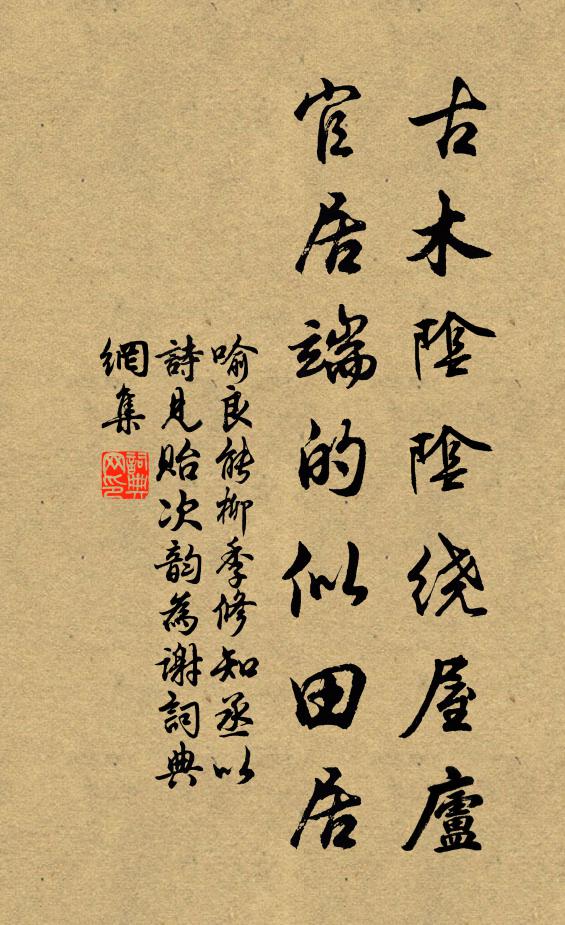 古木陰陰绕屋廬
官居端的似田居
喻良能柳季修知丞以
詩見貽次韵為谢詞典
網集
詞典網印